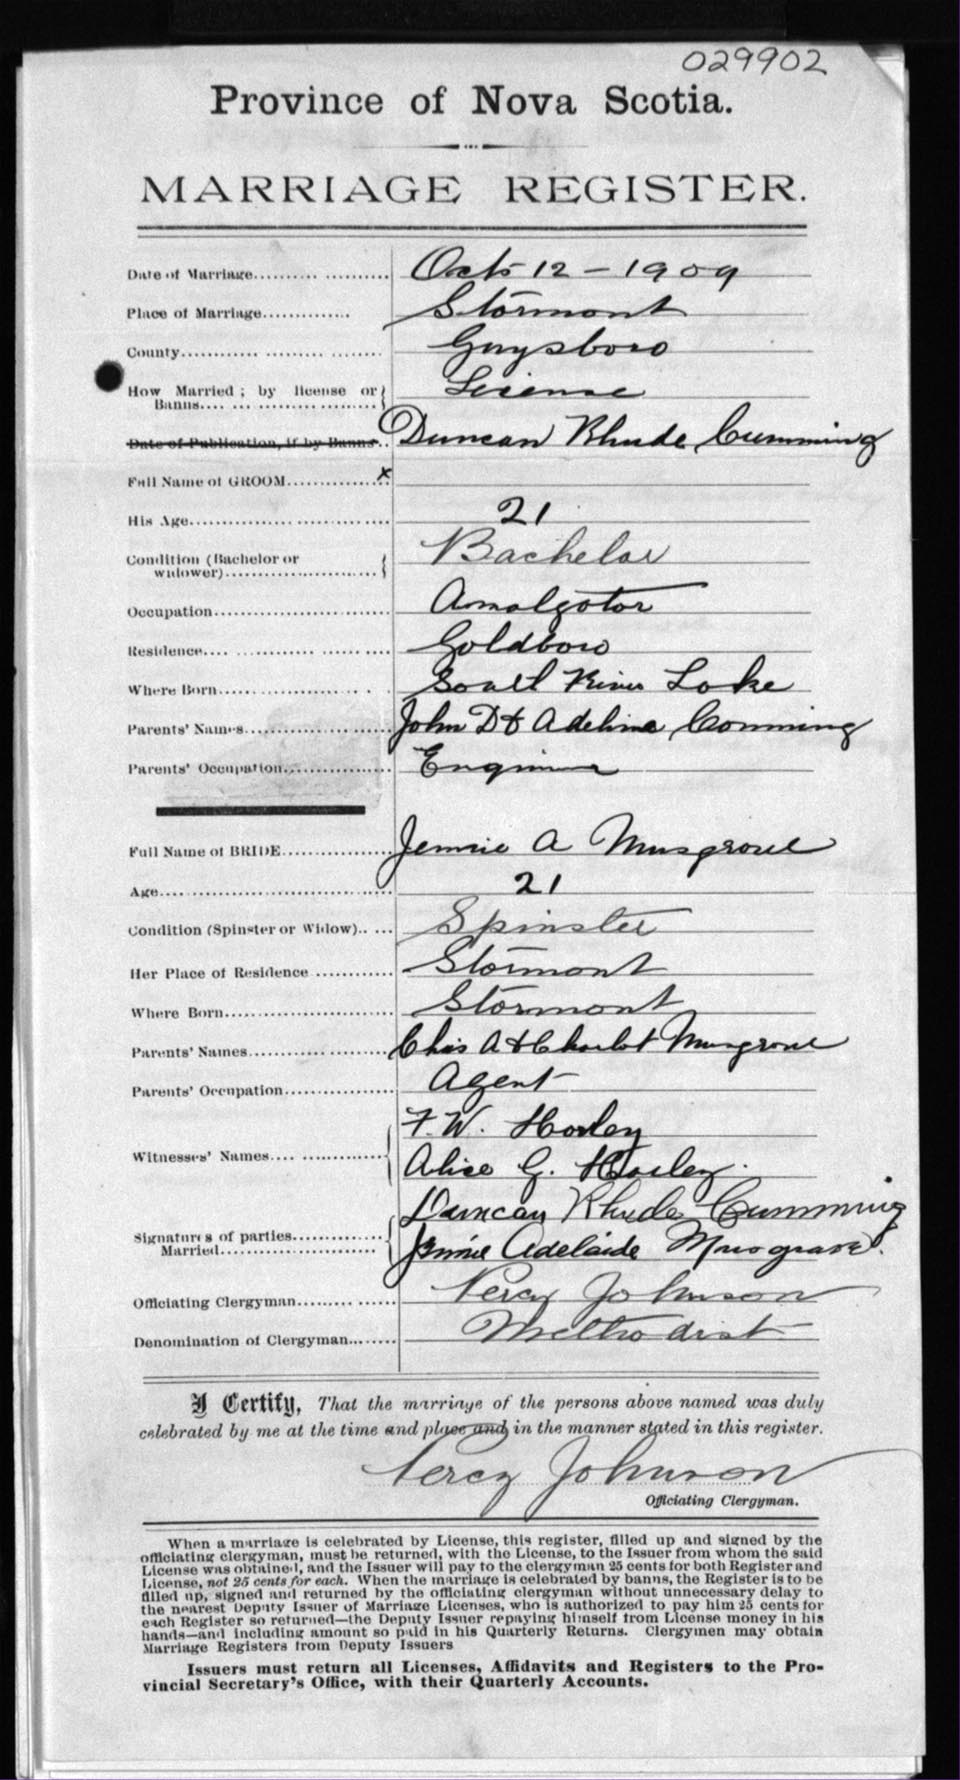 029902
Province of Nova Scotia.
MARRIAGE REGISTER.
Date of Marriage.......... Oct 12 - 1909
Place of Marriage.............. Stormont
County.............................. Guysboro
How Married ; by license or License
Banns....
Date of Publication, if by Banns.. Duncan Rhude Cumming
Full Name of GROOM............... x
His Age.............................. 21
Condition (Bachelor or Bachelor
widower)........................
Occupation........................ Amalgator
Residence.... Goldboro
Where Born.................... South River Lake
Parents' Names.................... John D & Adeline Cumming
Parents' Occupation............... Engineer
Full Name of BRIDE............... Jennie A Musgrove
Age.................................. 21
Condition (Spinster or Widow).. ... Spinster
Her Place of Residence ............ Stormont
Where Born........................ Stormont
Parents' Names.................... Chas A & Charlot Musgrove
Parents' Occupation............... Agent
F. W.
Witnesses' Names.... Alice G.
Duncan Rhude Cumming
Signatures of parties..............
Married........................ Jennie Adelaide Musgrave.
Officiating Clergyman......... ...... Percy Johnson
Denomination of Clergyman........ Methodist
I Certify, That the marriage of the persons above named was duly
celebrated by me at the time and place and in the manner stated in this register.
Percy Johnson
Officiating Clergyman.
When a marriage is celebrated by License, this register, filled up and signed by the
officiating clergyman, must be returned, with the License, to the Issuer from whom the said
License was obtained, and the Issuer will pay to the clergyman 25 cents for both Register and
License, not 25 cents for each. When the marriage is celebrated by banns, the Register is to be
filled up, signed and returned by the officiating clergyman without unnecessary delay to
the nearest Deputy Issuer of Marriage Licenses, who is authorized to pay him 25 cents for
each Register so returned—the Deputy Issuer repaying himself from License money in his
hands—and including amount so paid in his Quarterly Returns. Clergymen may obtain
Marriage Registers from Deputy Issuers
Issuers must return all Licenses, Affidavits and Registers to the Pro-
vincial Secretary's Office, with their Quarterly Accounts.